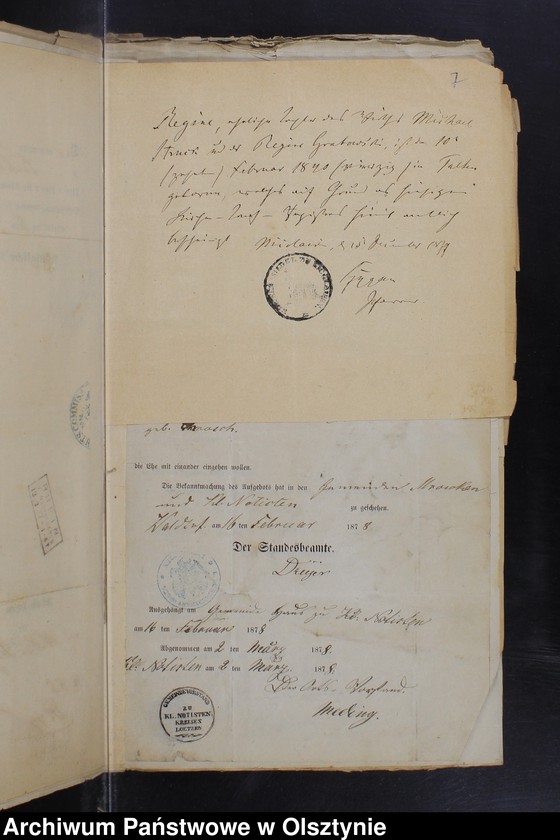 7
Regine, eheliche Tochter des Wirths Michael
und der Regine Grabowski, ist den 10t
(zehnten) Februar 1840 (vierzig) in Talten
geboren, welches auf Grund des hiesigen
Kirchen-Tauf-Registers hiermit amtlich
bescheinigt Nicolaiken, d 15 December 1879
Pfarrer
geb.
die Ehe mit einander eingehen wollen.
Die Bekanntmachung des Aufgebots hat in den Gemeinden Mrowken
und Kl. Notisten zu geschehen.
am 16 ten Februar 1878
Der Standesbeamte.
Dreyer
Ausgehängt am Gemeinde Haus zu Kl. Notisten
am 16 ten Februar 1878
Abgenommen am 2 ten März 1878.
Kl. Notisten am 2 ten März 1878.
Der Orts-Vorstand
GEMEINDEVORSTAND
ZU
KL. NOTISTEN
KREISES
LOETZEN
Archiwum Państwowe w Olsztynie